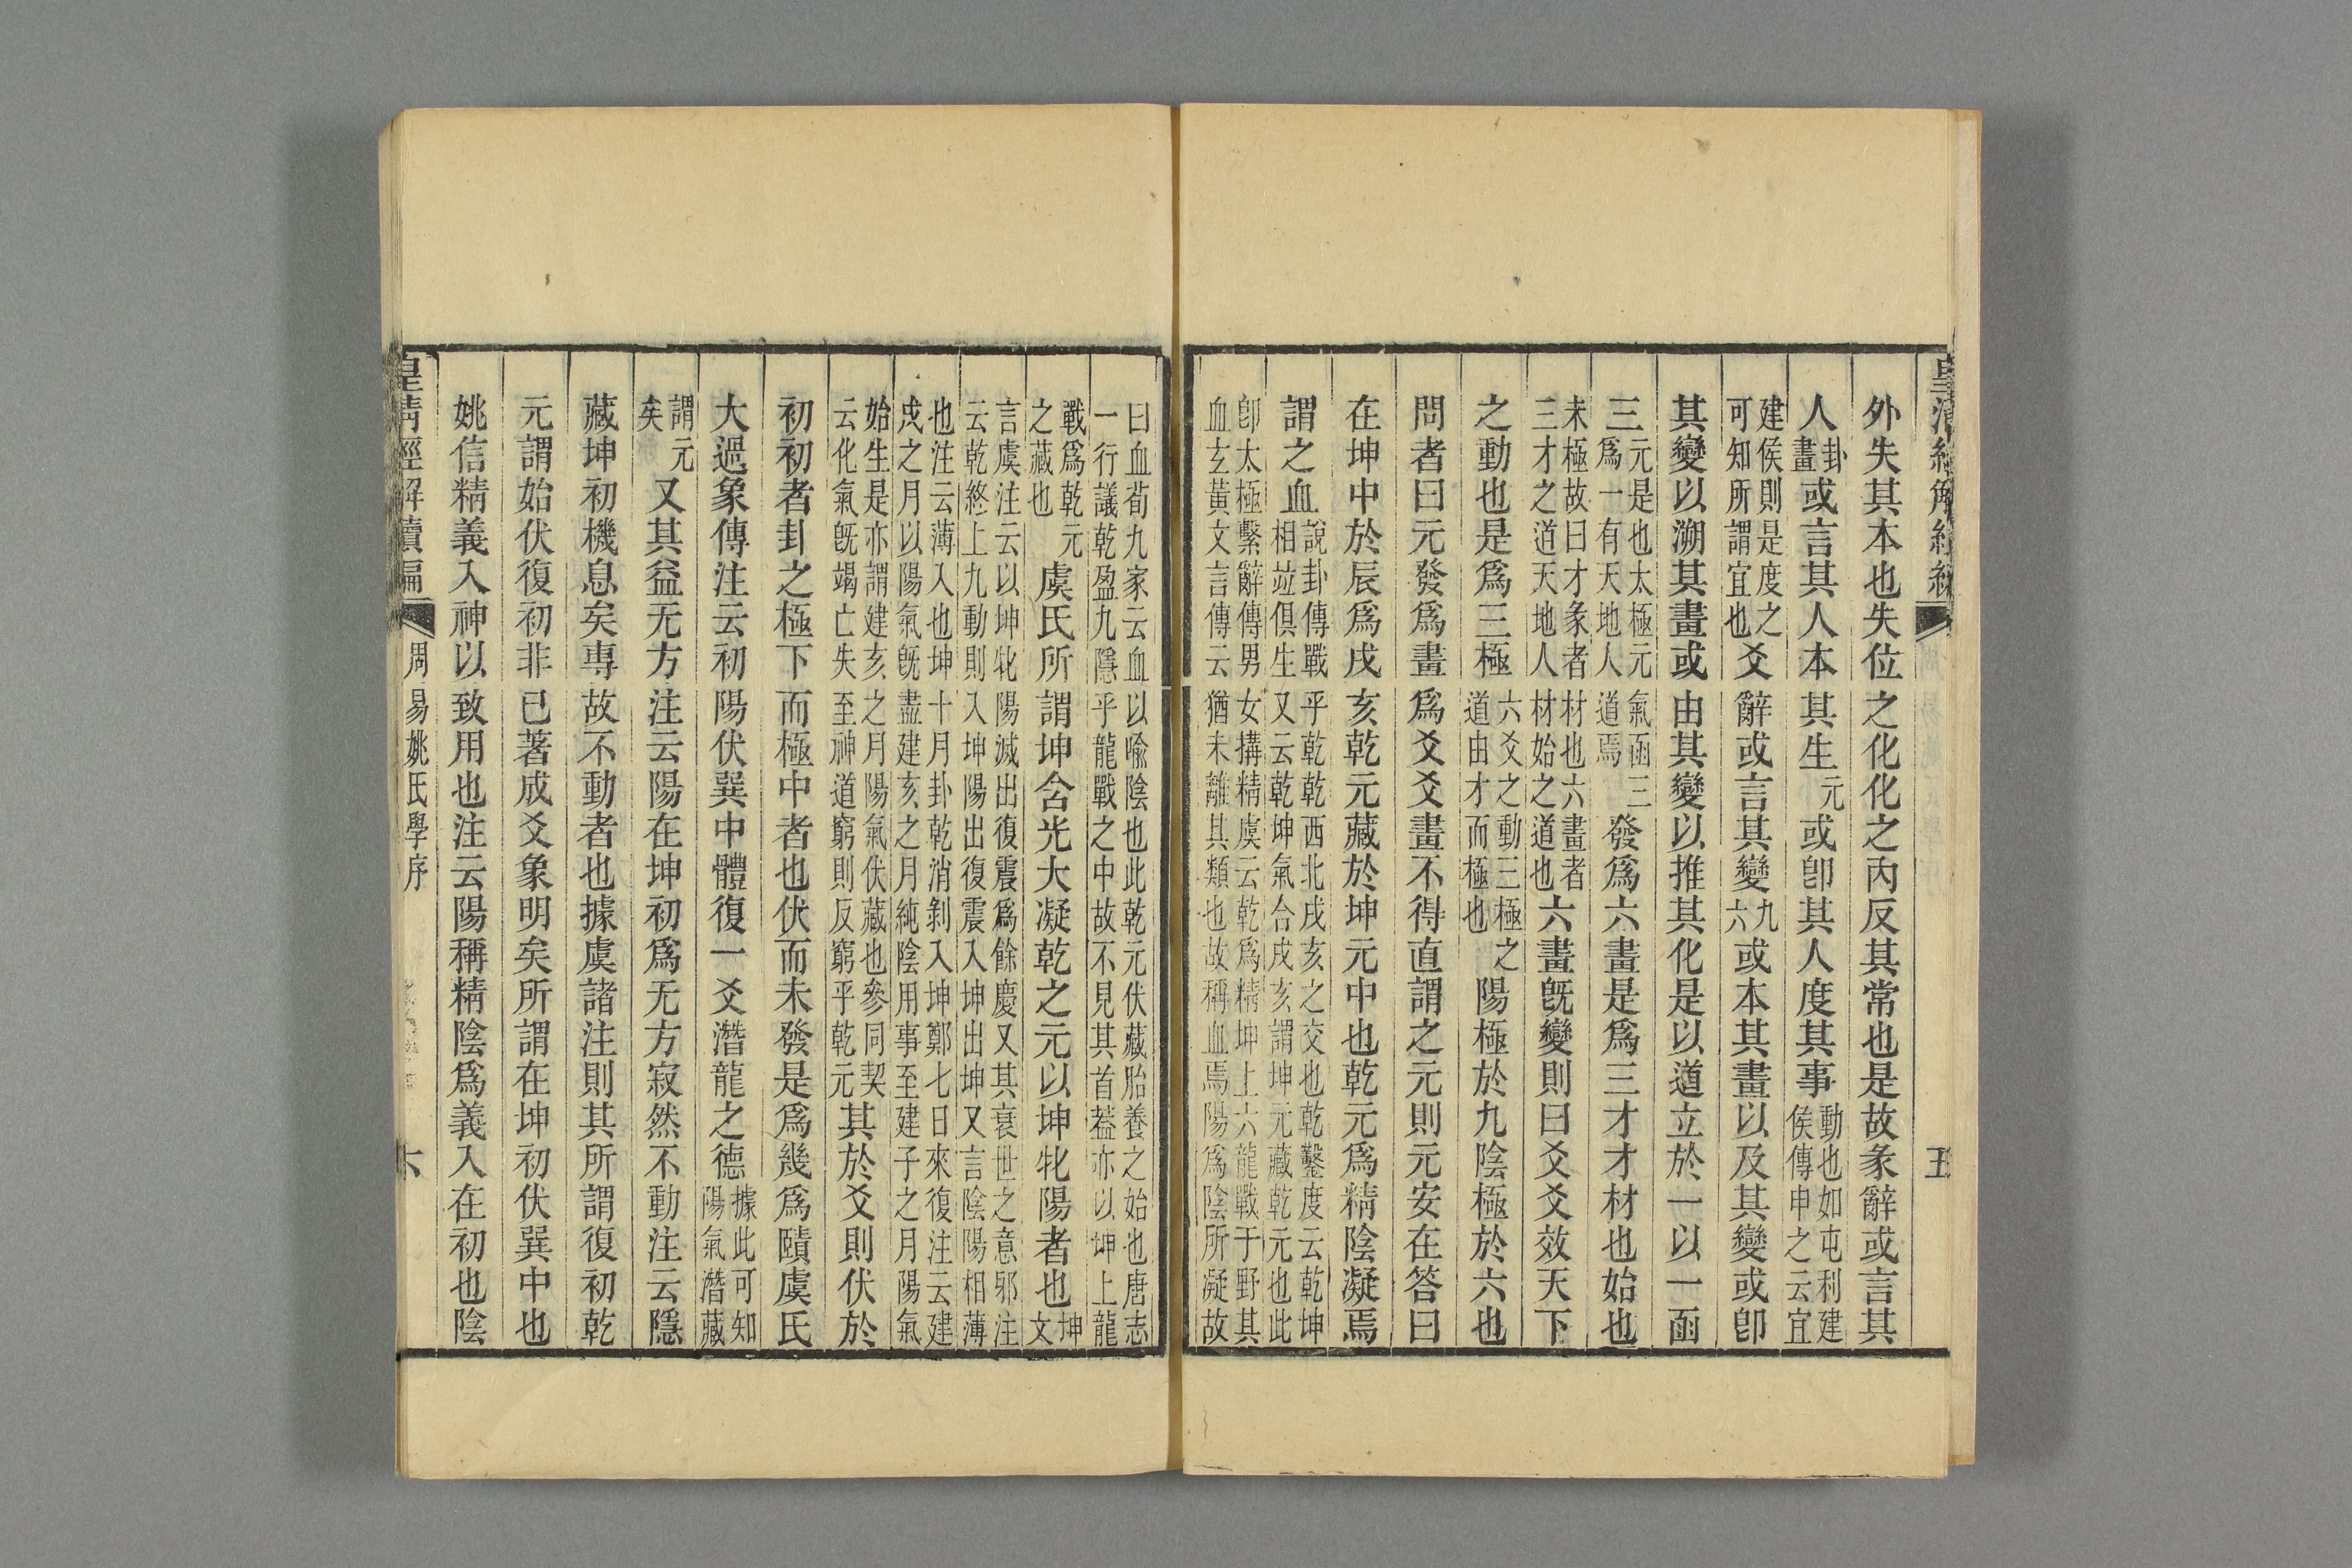 五
外失其本也失位之化化之內反其常也是故彖辭或言其
人卦畫或言其人本其生元或卽其人度其事動也如屯利建侯傳申之云宜
建侯則是度之可知所謂宜也爻辭或言其變九六或本其畫以及其變或卽
其變以溯其畫或由其變以推其化是以道立於一以一函
三元是也太極元氣函三爲一有天地人道焉發爲六畫是爲三才才材也始也
未極故曰才彖者材也六畫者三才之道天地人材始之道也六畫旣變則曰爻爻效天下
之動也是爲三極六爻之動三極之道由才而極也陽極於九陰極於六也
問者曰元發爲畫爲爻爻畫不得直謂之元則元安在答曰
在坤中於辰爲戌亥乾元藏於坤元中也乾元爲精陰凝焉
謂之血說卦傳戰乎乾乾西北戌亥之交也乾鑿度云乾坤相竝俱生又云乾坤氣合戌亥謂坤元藏乾元也此
卽太極繫辭傳男女搆精虞云乾爲精坤上六龍戰于野其血玄黃文言傳云猶未離其類也故稱血焉陽爲陰所凝故
曰血荀九家云血以喩陰也此乾元伏藏胎養之始也唐志一行議乾盈九隱乎龍戰之中故不見其首葢亦以坤上龍
戰爲乾元之藏也虞氏所謂坤含光大凝乾之元以坤牝陽者也坤文
言虞注云以坤牝陽滅出復震爲餘慶又其衰世之意邪注云乾終上九動則入坤陽出復震入坤出坤又言陰陽相薄
也注云薄入也坤十月卦乾消剝入坤鄭七日來復注云建戌之月以陽氣旣盡建亥之月純陰用事至建子之月陽氣
始生是亦謂建亥之月陽氣伏藏也參同契云化氣旣竭亡失至神道窮則反窮乎乾元其於爻則伏於
初初者卦之極下而極中者也伏而未發是爲幾爲賾虞氏
大過象傳注云初陽伏巽中體復一爻潛龍之德據此可知陽氣潛藏
謂元矣又其益无方注云陽在坤初爲无方寂然不動注云隱
藏坤初機息矣專故不動者也據虞諸注則其所謂復初乾
元謂始伏復初非已著成爻象明矣所謂在坤初伏巽中也
姚信精義入神以致用也注云陽稱精陰爲義入在初也陰
皇清經解續編 周易姚氏學序 六